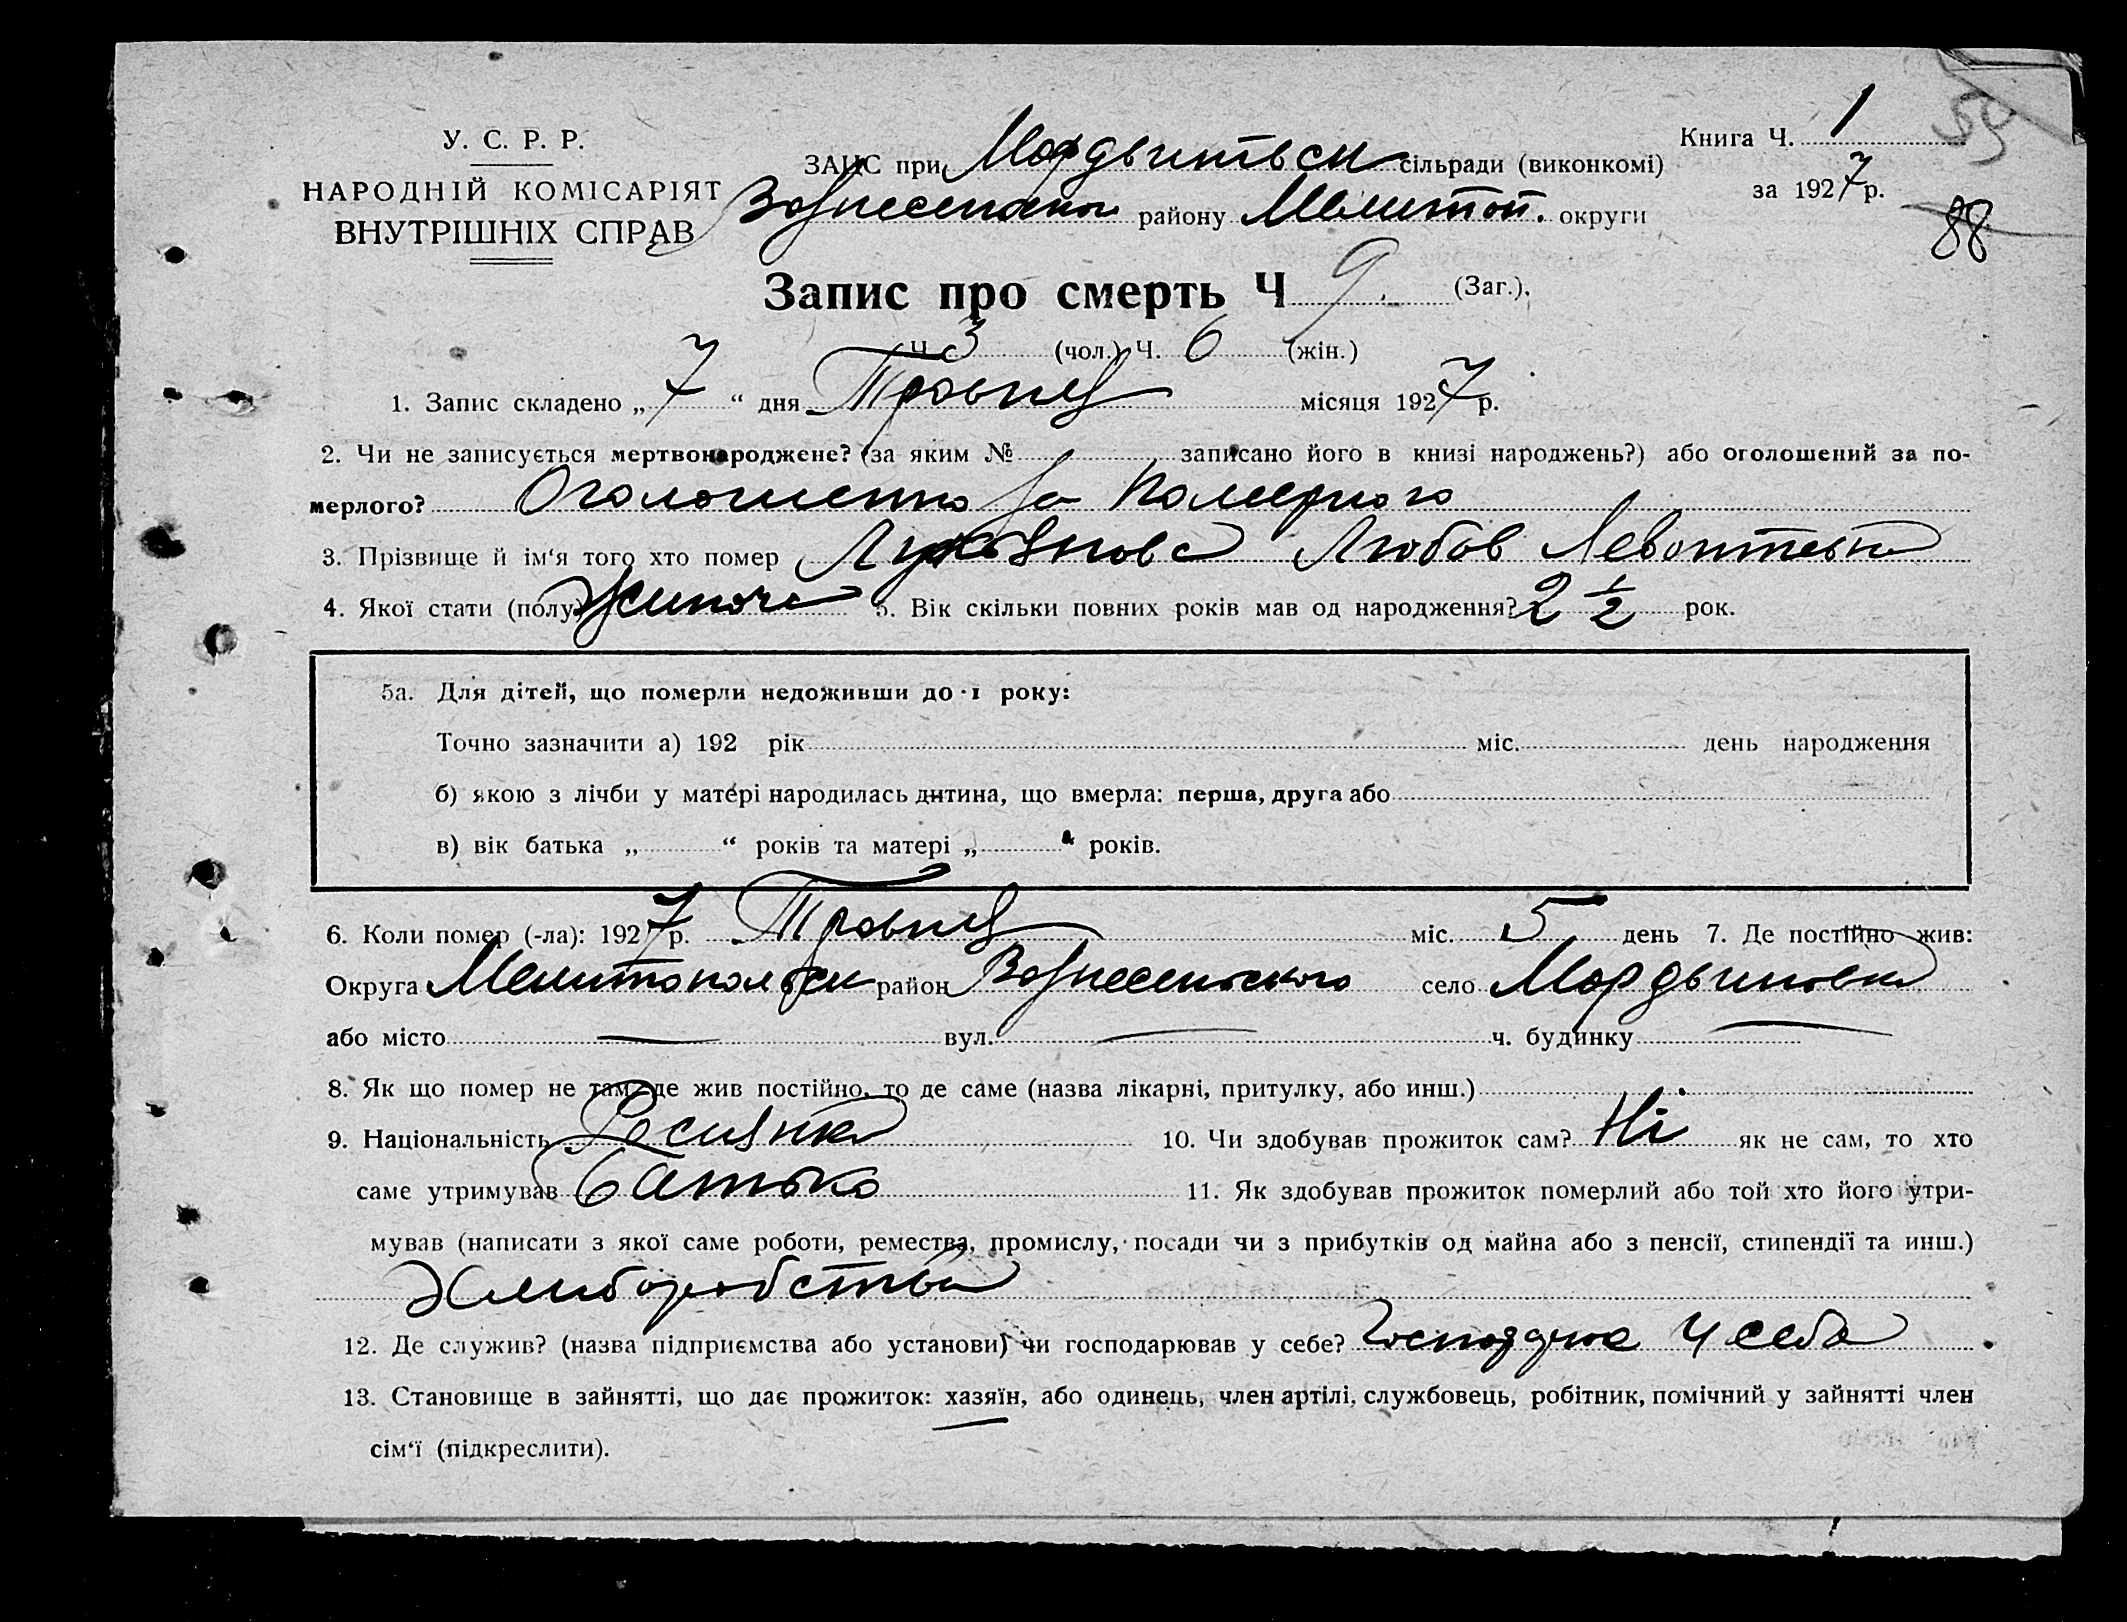 У. С. Р. Р.
НАРОДНІЙ КОМІСАРІЯТ
ВНУТРІШНІХ СПРАВ
Книга Ч. 1
за 1927 р.
88
ЗАГС при сільради (виконкомі)
району Мелитоп. округи
Запис про смерть Ч 9. (Заг.).
Ч 3 (чол.) Ч. 6 (жін.)
1. Запис складено „ 7 “ дня Травня місяця 1927 р.
2. Чи не записується мертвонароджене? (за яким № записано його в книзі народжень?) або оголошений за по-
мерлого? за
3. Прізвище й ім‘я того хто помер Любов
4. Якої стати (полу) 5. Вік скільки повних років мав од народження? 2 1/2 рок.
5а. Для дітей, що померли недоживши до 1 року:
Точно зазначити а) 192 рік міс. день народження
б) якою з лічби у матері народилась дитина, що вмерла: перша, друга або
в) вік батька „ “ років та матері „ “ років.
6. Коли помер (-ла): 1927 р. Травня міс. 5 день 7. Де постійно жив:
Округа район Вознесенського село
або місто — вул. — ч. будинку —
8. Як що помер не там, де жив постійно, то де саме (назва лікарні, притулку, або инш.)
9. Національність 10. Чи здобував прожиток сам? Ні як не сам, то хто
саме утримував Батько 11. Як здобував прожиток померлий або той хто його утри-
мував (написати з якої саме роботи, ремества, промислу, посади чи з прибутків од майна або з пенсії, стипендії та инш.)
12. Де служив? (назва підприємства або установи) чи господарював у себе? у себе
13. Становище в зайнятті, що дає прожиток: хазяїн, або одинець, член артілі, службовець, робітник, помічний у зайнятті член
сім‘ї (підкреслити).